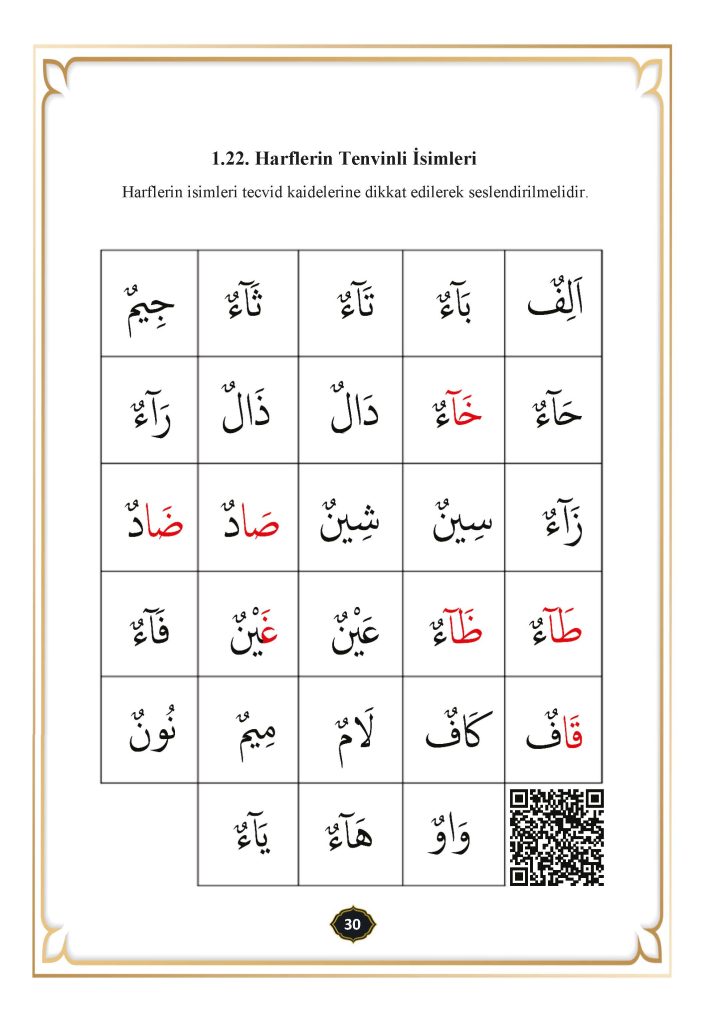 1.22. Harflerin Tenvinli İsimleri
Harflerin isimleri tecvid kaidelerine dikkat edilerek seslendirilmelidir.
اَلِفٌ بَآءٌ تَآءٌ ثَآءٌ جِيمٌ
حَآءٌ خَآءٌ دَالٌ ذَالٌ رَآءٌ
زَآءٌ سِينٌ شِينٌ صَادٌ ضَادٌ
طَآءٌ ظَآءٌ عَيْنٌ غَيْنٌ فَآءٌ
قَافٌ كَافٌ لَامٌ مِيمٌ نُونٌ
وَاوٌ هَآءٌ يَآءٌ
30